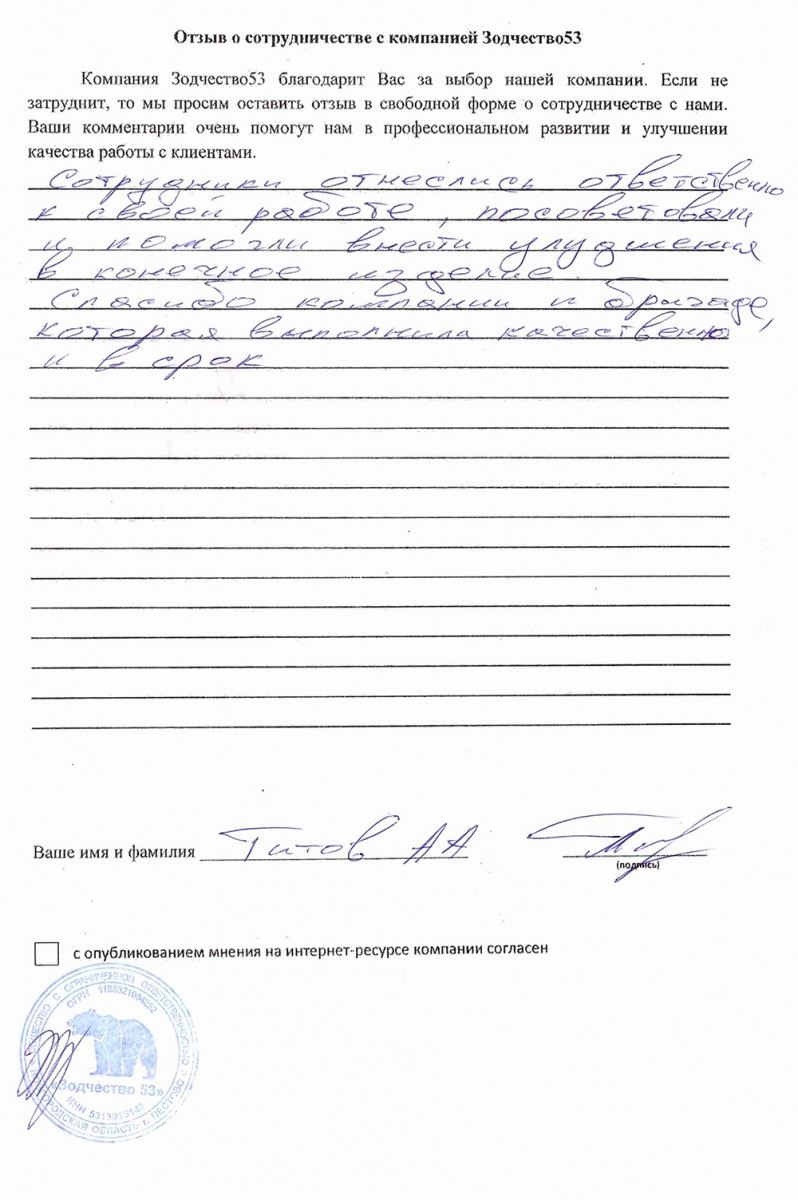 Отзыв о сотрудничестве с компанией Зодчество53
Компания Зодчество53 благодарит Вас за выбор нашей компании. Если не
затруднит, то мы просим оставить отзыв в свободной форме о сотрудничестве с нами.
Ваши комментарии очень помогут нам в профессиональном развитии и улучшении
качества работы с клиентами.
Сотрудники отнеслись ответственно
к своей работе, посоветовали
и помогли внести улучшения
в конечное изделие.
Спасибо компании и бригаде,
которая выполнила качественно
и в срок
Ваше имя и фамилия Титов АА
(подпись)
с опубликованием мнения на интернет-ресурсе компании согласен
ОБЩЕСТВО С ОГРАНИЧЕННОЙ ОТВЕТСТВЕННОСТЬЮ
ОГРН
«Зодчество 53»
ИНН
ОБЛАСТЬ г. ПЕСТОВО